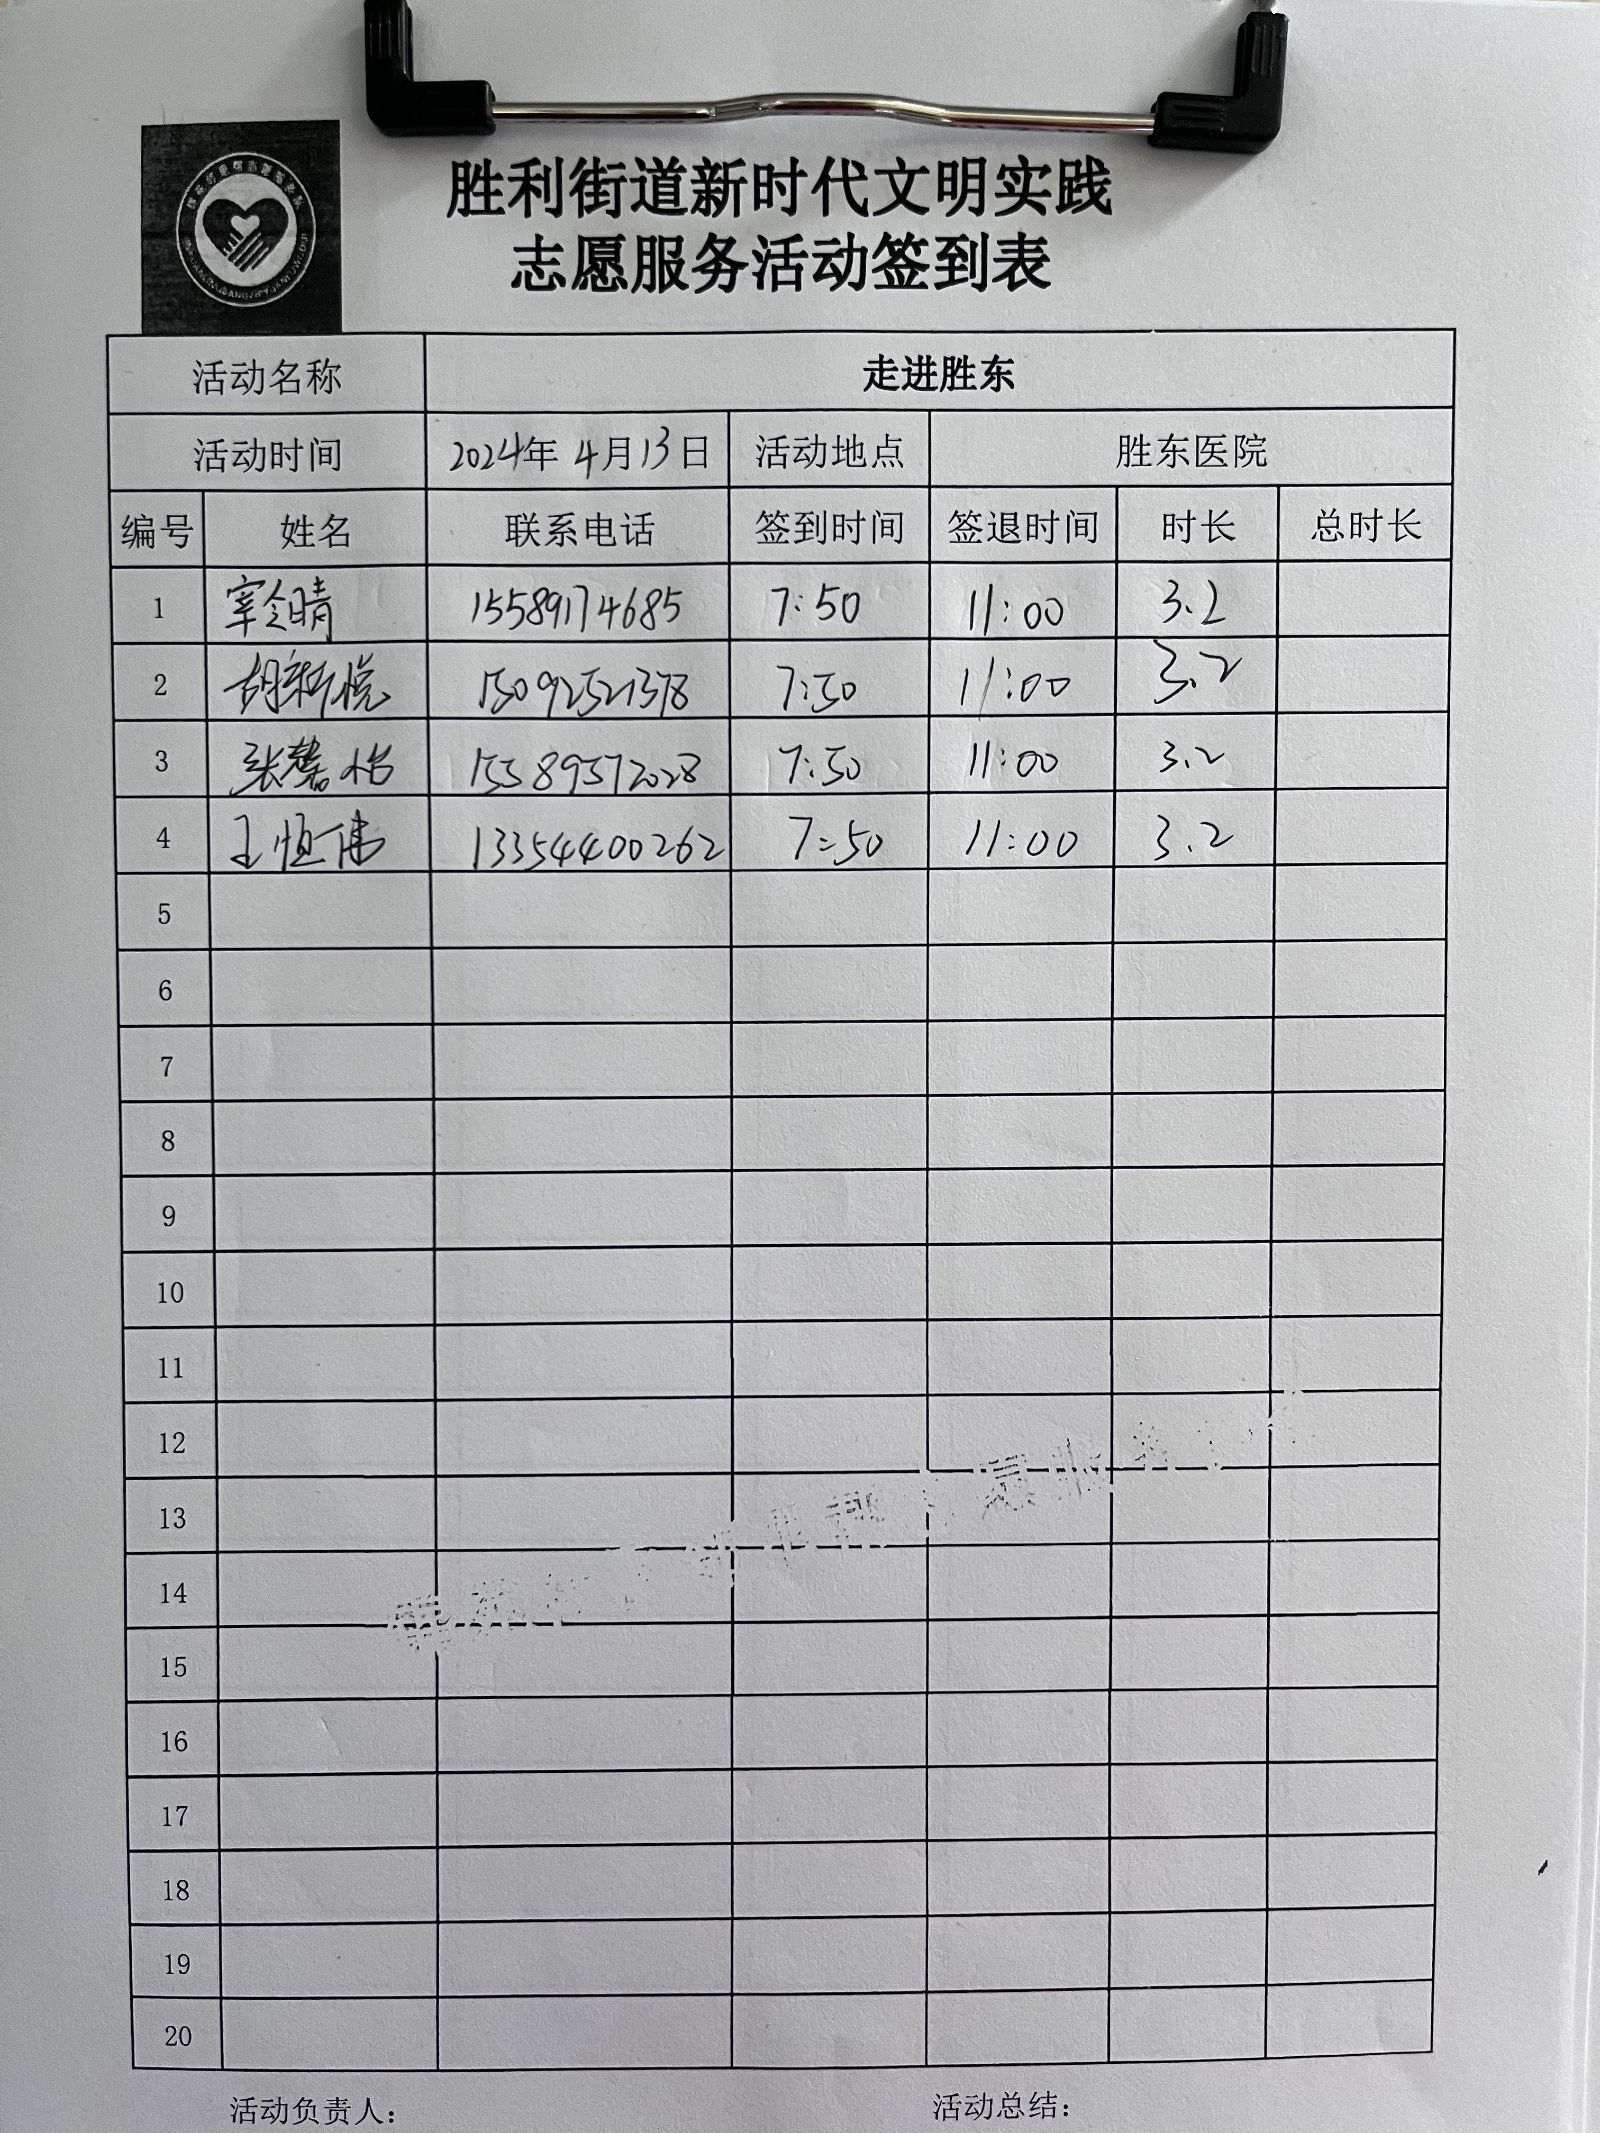 胜利街道新时代文明实践
志愿服务活动签到表
活动名称 走进胜东
活动时间 2024年 4月13日 活动地点 胜东医院
编号 姓名 联系电话 签到时间 签退时间 时长 总时长
1 宰令晴 15589174685 7:50 11:00 3.2
2 胡新悦 15092521378 7:50 11:00 3.2
3 张馨怡 15589572028 7:50 11:00 3.2
4 王恒伟 13354400262 7:50 11:00 3.2
5
6
7
8
9
10
11
12
13
14
15
16
17
18
19
20
活动负责人: 活动总结: